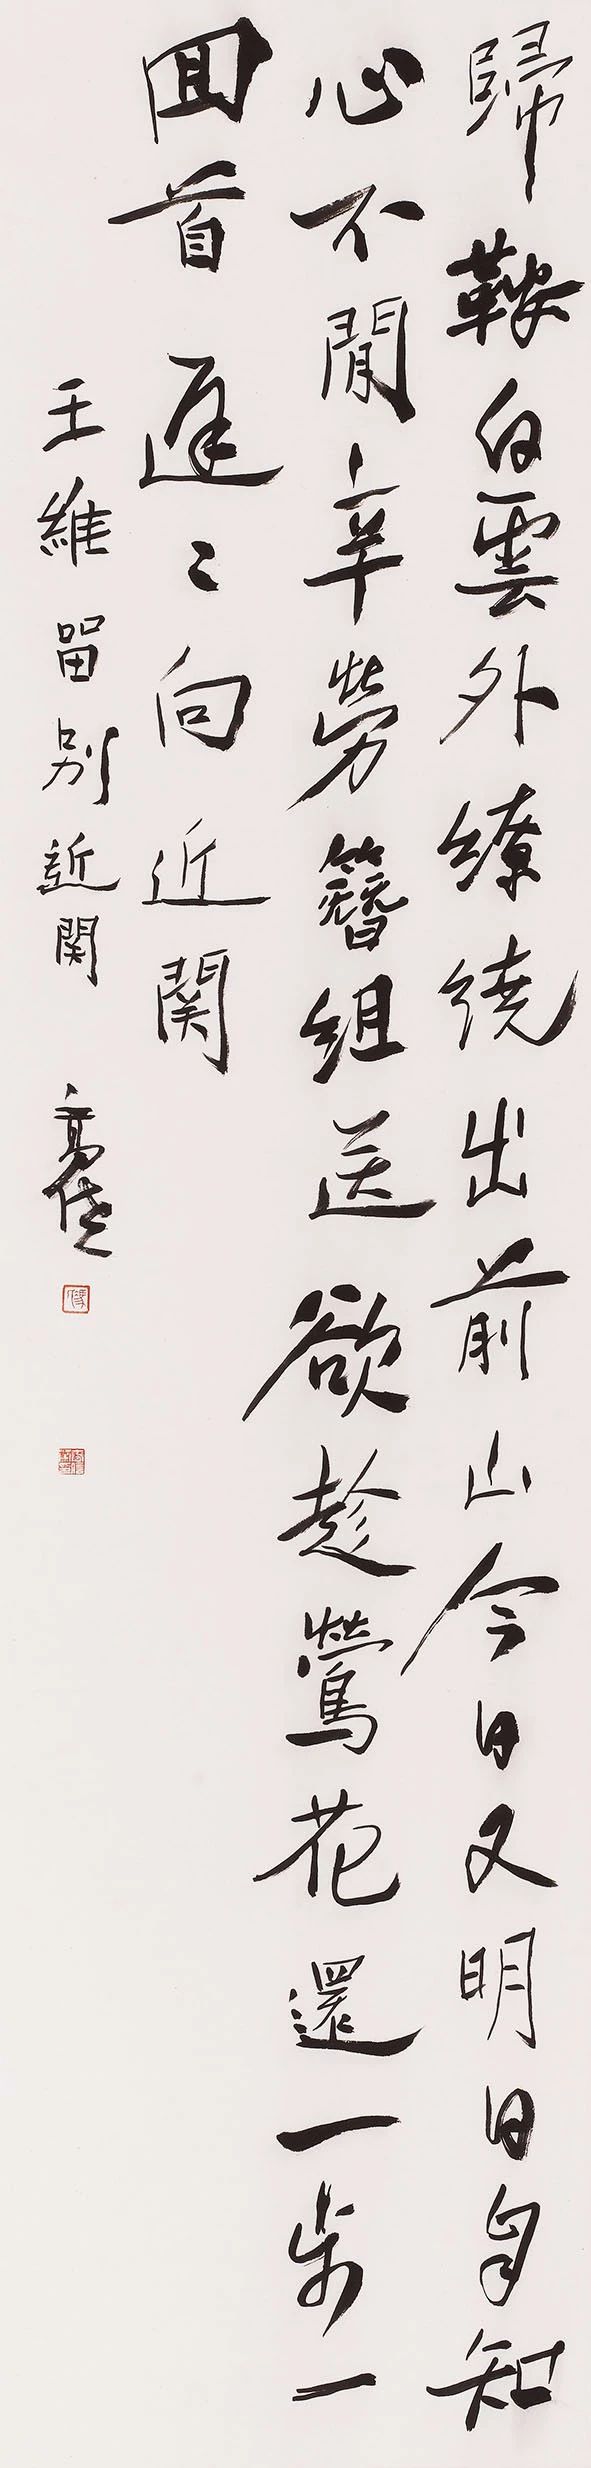 歸鞍白雲外繚繞出前山今日又明日自知
心不閒辛勞簪組送欲趁鶯花還一步一
囬首遲〻向近関
王維留別近関